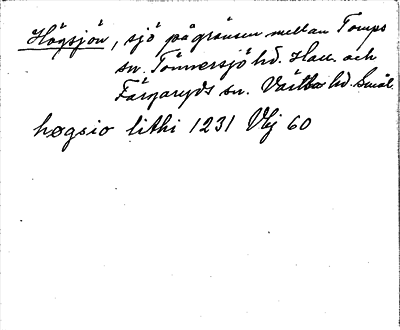 Högsjön, sjö på gränsen mellan Torups
sn. Tönnersjö hd. Hall. och
Färgaryds sn. Västbo hd. Smål.
høgsio lithi 1231 Vbj 60